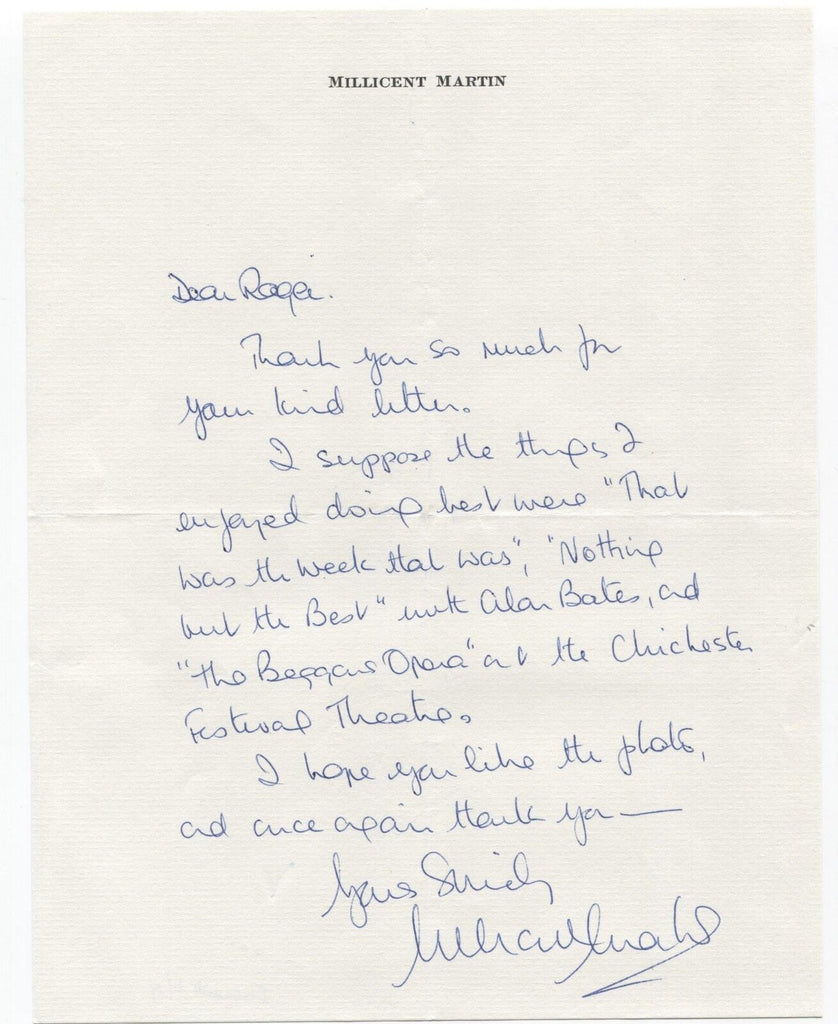 MILLICENT MARTIN
Dear Roger.
Thank you so much for
your kind letter.
I suppose the things I
enjoyed doing best were "That
was the Week that was", "Nothing
but the Best" with Alan Bates, and
"The Beggars Opera" at the Chichester
Festival Theatre.
I hope you like the photo,
and once again thank you —
Yours Sincerely
Millicent Martin